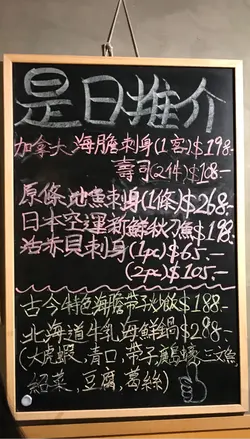 是日推介
加拿大海膽刺身(1客)$198.-
壽司(2件)$108.-
原條池魚刺身(1條)$268.-
日本空運新鮮秋刀魚$198
活赤貝刺身(1pc)$65.-
(2pc)$105.-
古今特色海膽帶子炒飯$188.-
北海道牛乳海鮮鍋$298.-
(大虎蝦、青口、帶子、廣島蠔、三文魚
紹菜、豆腐、葛絲)